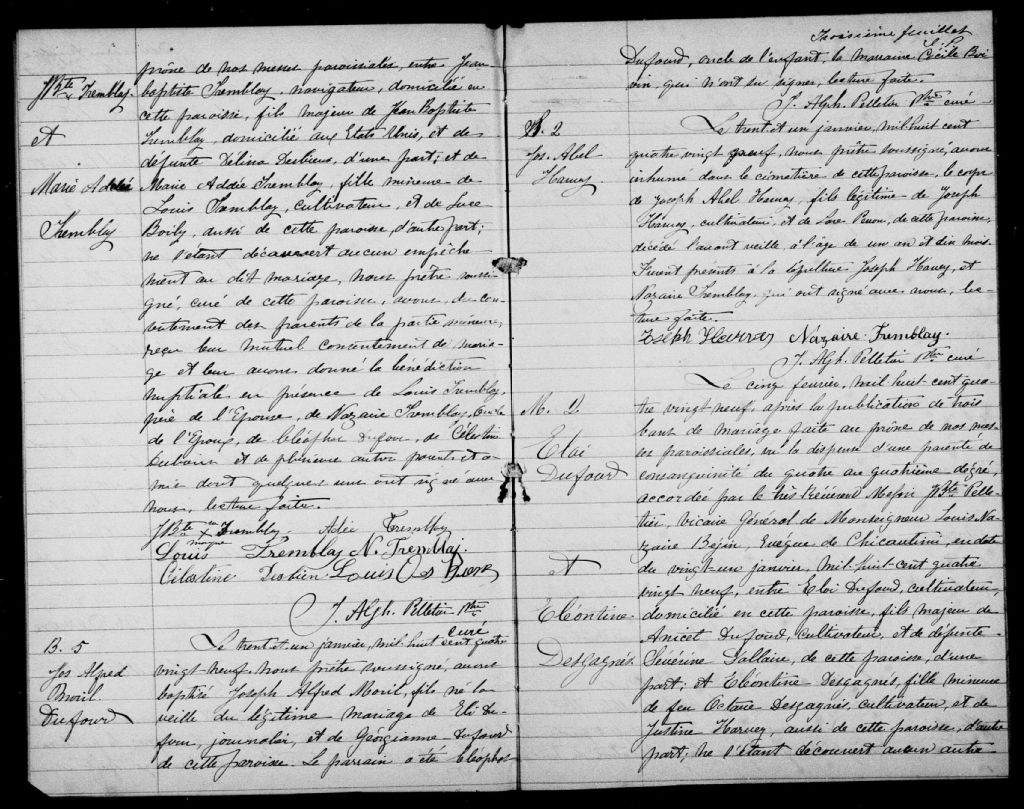 JBte Tremblay
et
Marie Addée
Tremblay
prône de nos messes paroissiales, entre Jean
baptiste Tremblay, navigateur, domicilié en
cette paroisse, fils majeur de Jean Baptiste
Tremblay, domicilié aux Etats Unis, et de
défunte Délina Desbiens, d'une part; et de
Marie Addée Tremblay, fille mineure de
Louis Tremblay, cultivateur, et de Luce
Boily, aussi de cette paroisse, d'autre part;
ne s'étant découvert aucun empêche
ment au dit mariage, nous prêtre soussi-
gné, curé de cette paroisse, avons, du con-
sentement des parents de la partie mineure,
reçu leur mutuel consentement de maria-
ge et leur avons donné la bénédiction
nuptiale en présence de Louis Tremblay,
père de l'Epouse, de Nazaire Tremblay, Oncle
de l'Epoux, de Cléophas Dufour, de Célestine
et de plusieurs autres parents et a-
mis dont quelques uns ont signé avec
nous, lecture faite.
JBte Tremblay Adée Tremblay
Louis Tremblay N. Tremblay
Célestine Desbien Louis
J. Alph. Pelletier Ptre
curé
B. 5
Jos Alfred
Dufourd
Le trent et un janvier, mil huit cent quatre
vingt neuf, nous prêtre soussigné, avons
baptisé Joseph Alfred, fils né la
veille du légitime mariage de Eli Du-
four, journalier, et de Géorgianne Dufourd
de cette paroisse. Le parrain a été Cléophas
Troisième feuillet
Dufourd, oncle de l'enfant, la marraine Cécile Boi-
vin, qui n'ont su signer, lecture faite.
J. Alph. Pelletier Ptre curé
S. 2
Jos. Abel
Harvey
Le trent et un janvier, mil huit cent
quatre vingt neuf, nous prêtre soussigné, avons
inhumé dans le cimetière de cette paroisse, le corps
de Joseph Abel Harvey, fils légitime de Joseph
Harvey, cultivateur, et de, de cette paroisse,
décédé l'avant veille, à l'âge de un an et dix mois.
Furent présents à la sépulture Joseph Harvey, et
Nazaire Tremblay, qui ont signé avec nous, lec-
ture faite.
Nazaire Tremblay.
J. Alph. Pelletier Ptre curé
M. 2
Eloi
Dufourd
et
Eléontine
Desgagnés
Le cinq fevrier, mil huit cent qua-
tre vingt neuf, après la publication de trois
bans de mariage faite au prône de nos mes-
ses paroissiales, vu la dispense d'une parenté de
consanguinité du quatre au quatrième dégré,
accordée par le très Révérend Messire JBte Pelle-
tier, Vicaire Général de Monseigneur Louis Na-
zaire Bégin, Evêque de Chicoutimi, en date
du vingt-un janvier, mil huit cent quatre
vingt neuf, entre Eloi Dufourd, cultivateur,
domicilié en cette paroisse, fils majeur de
Anicet Dufourd, cultivateur, et de défunte
Sévérine Dallaire, de cette paroisse, d'une
part; et Eléontine Desgagnés, fille mineure
de feu Octave Desgagnés, cultivateur, et de
Justine Harvey, aussi de cette paroisse, d'autre
part, ne s'étant découvert aucun autre